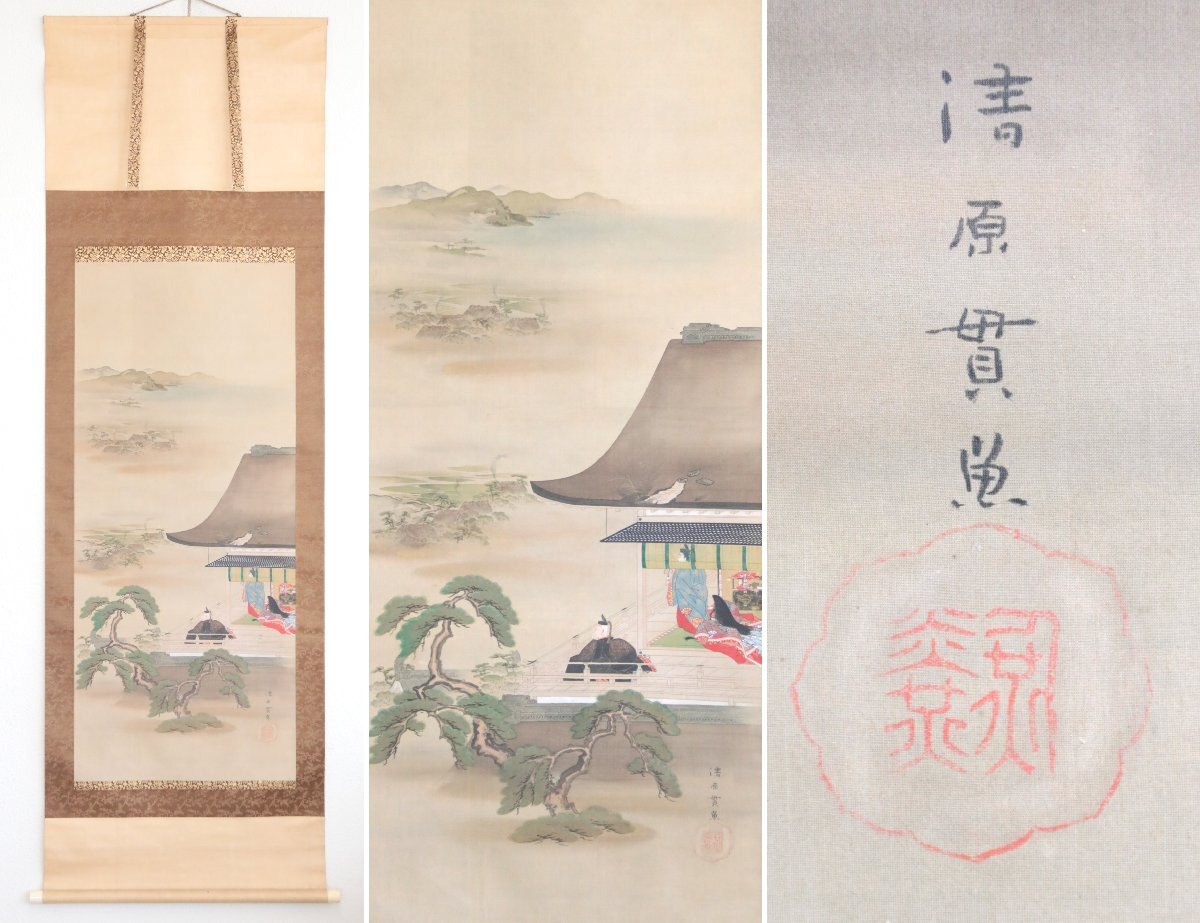 清原貫魚
清原貫魚